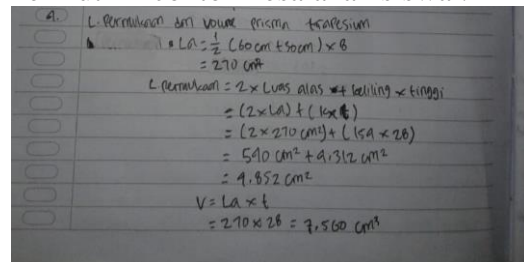 4. L. Permukaan dan volume prisma trapesium
• La = 1/2 (60 cm + 50 cm) × 8
= 270 cm²
L permukaan = 2 × Luas alas + keliling × tinggi
= (2 × La) + (K × t)
= (2 × 270 cm²) + (154 × 28)
= 540 cm² + 4.312 cm²
= 4.852 cm²
V = La × t
= 270 × 28 = 7.560 cm³